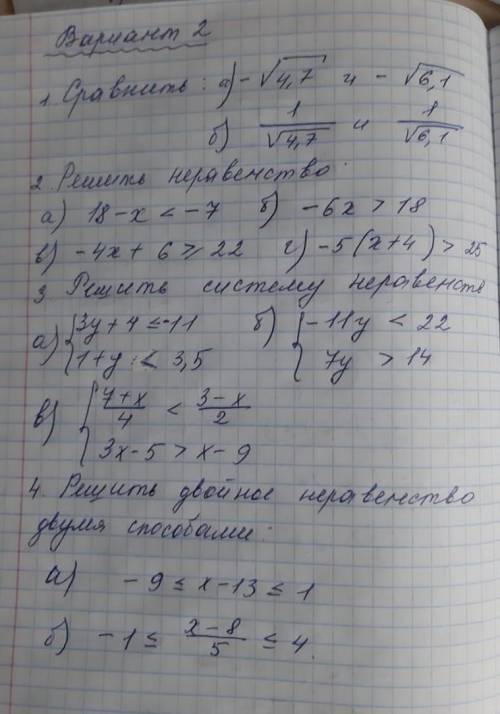 Вариант 2
1. Сравнить: а) -√4,7 и -√6,1
б) 1/√4,7 и 1/√6,1
2. Решить неравенство:
а) 18-x < -7 б) -6x > 18
в) -4x + 6 ≥ 22 г) -5(x+4) > 25
3 Решить систему неравенств
а) { 3y+4 ≤ -11 б) { -11y < 22
1+y < 3,5 7y > 14
в) { 7+x/4 < 3-x/2
3x-5 > x-9
4. Решить двойное неравенство
двумя способами:
а) -9 ≤ x-13 ≤ 1
б) -1 ≤ x-8/5 ≤ 4.